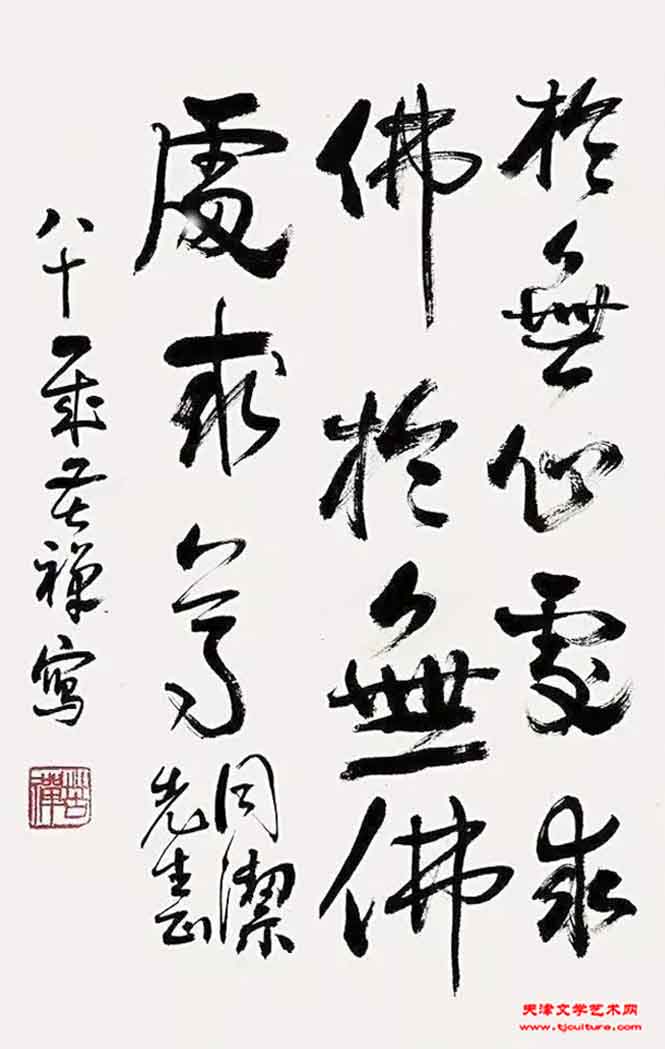 於無心處求
佛於無佛
處求尊
同潔
先生正
八十一歲苦禪寫
苦禪
天津文学艺术网
www.tjculture.com